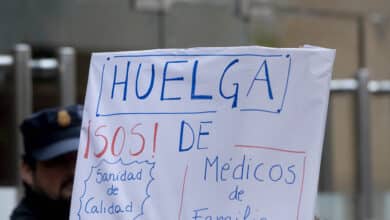 HUELGA
¡SOS! DE
Sanidad
de
Calidad
Médicos
de
Familia